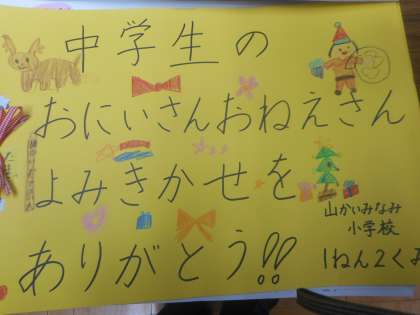 中学生の
おにいさんおねえさん
よみきかせを
ありがとう!!
山かいみなみ
小学校
1ねん2くみ